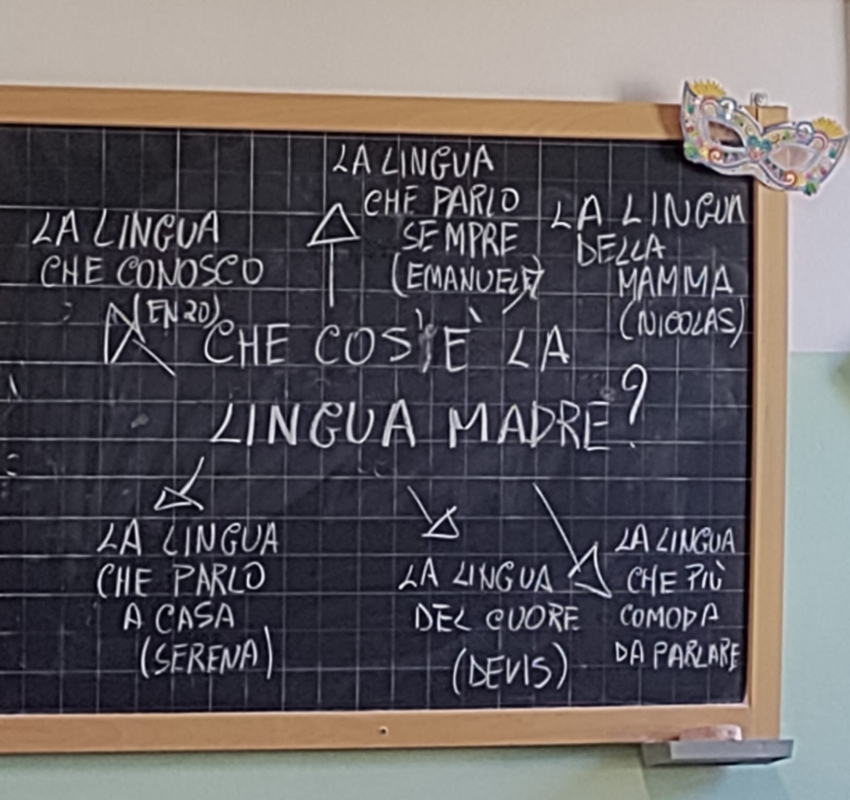 LA LINGUA
CHE CONOSCO
(ENZO)
LA LINGUA
CHE PARLO
SEMPRE
(EMANUELE)
LA LINGUA
DELLA
MAMMA
(NICOLAS)
CHE COS'È LA
LINGUA MADRE?
LA LINGUA
CHE PARLO
A CASA
(SERENA)
LA LINGUA
DEL CUORE
(DEVIS)
LA LINGUA
CHE PIÙ
COMODA
DA PARLARE